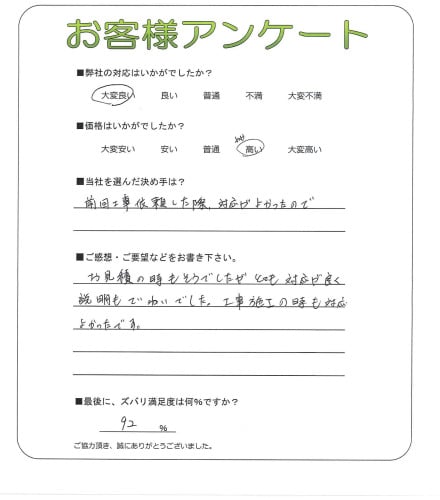 お客様アンケート
■弊社の対応はいかがでしたか？
大変良い 良い 普通 不満 大変不満
■価格はいかがでしたか？
大変安い 安い 普通 高い 大変高い
■当社を選んだ決め手は？
前回工事依頼した際、対応がよかったので
■ご感想・ご要望などをお書き下さい。
お見積の時もそうでしたがとても対応が良く
説明もていねいでした。工事施工の時も対応
よかったです。
■最後に、ズバリ満足度は何%ですか？
92 %
ご協力頂き、誠にありがとうございました。